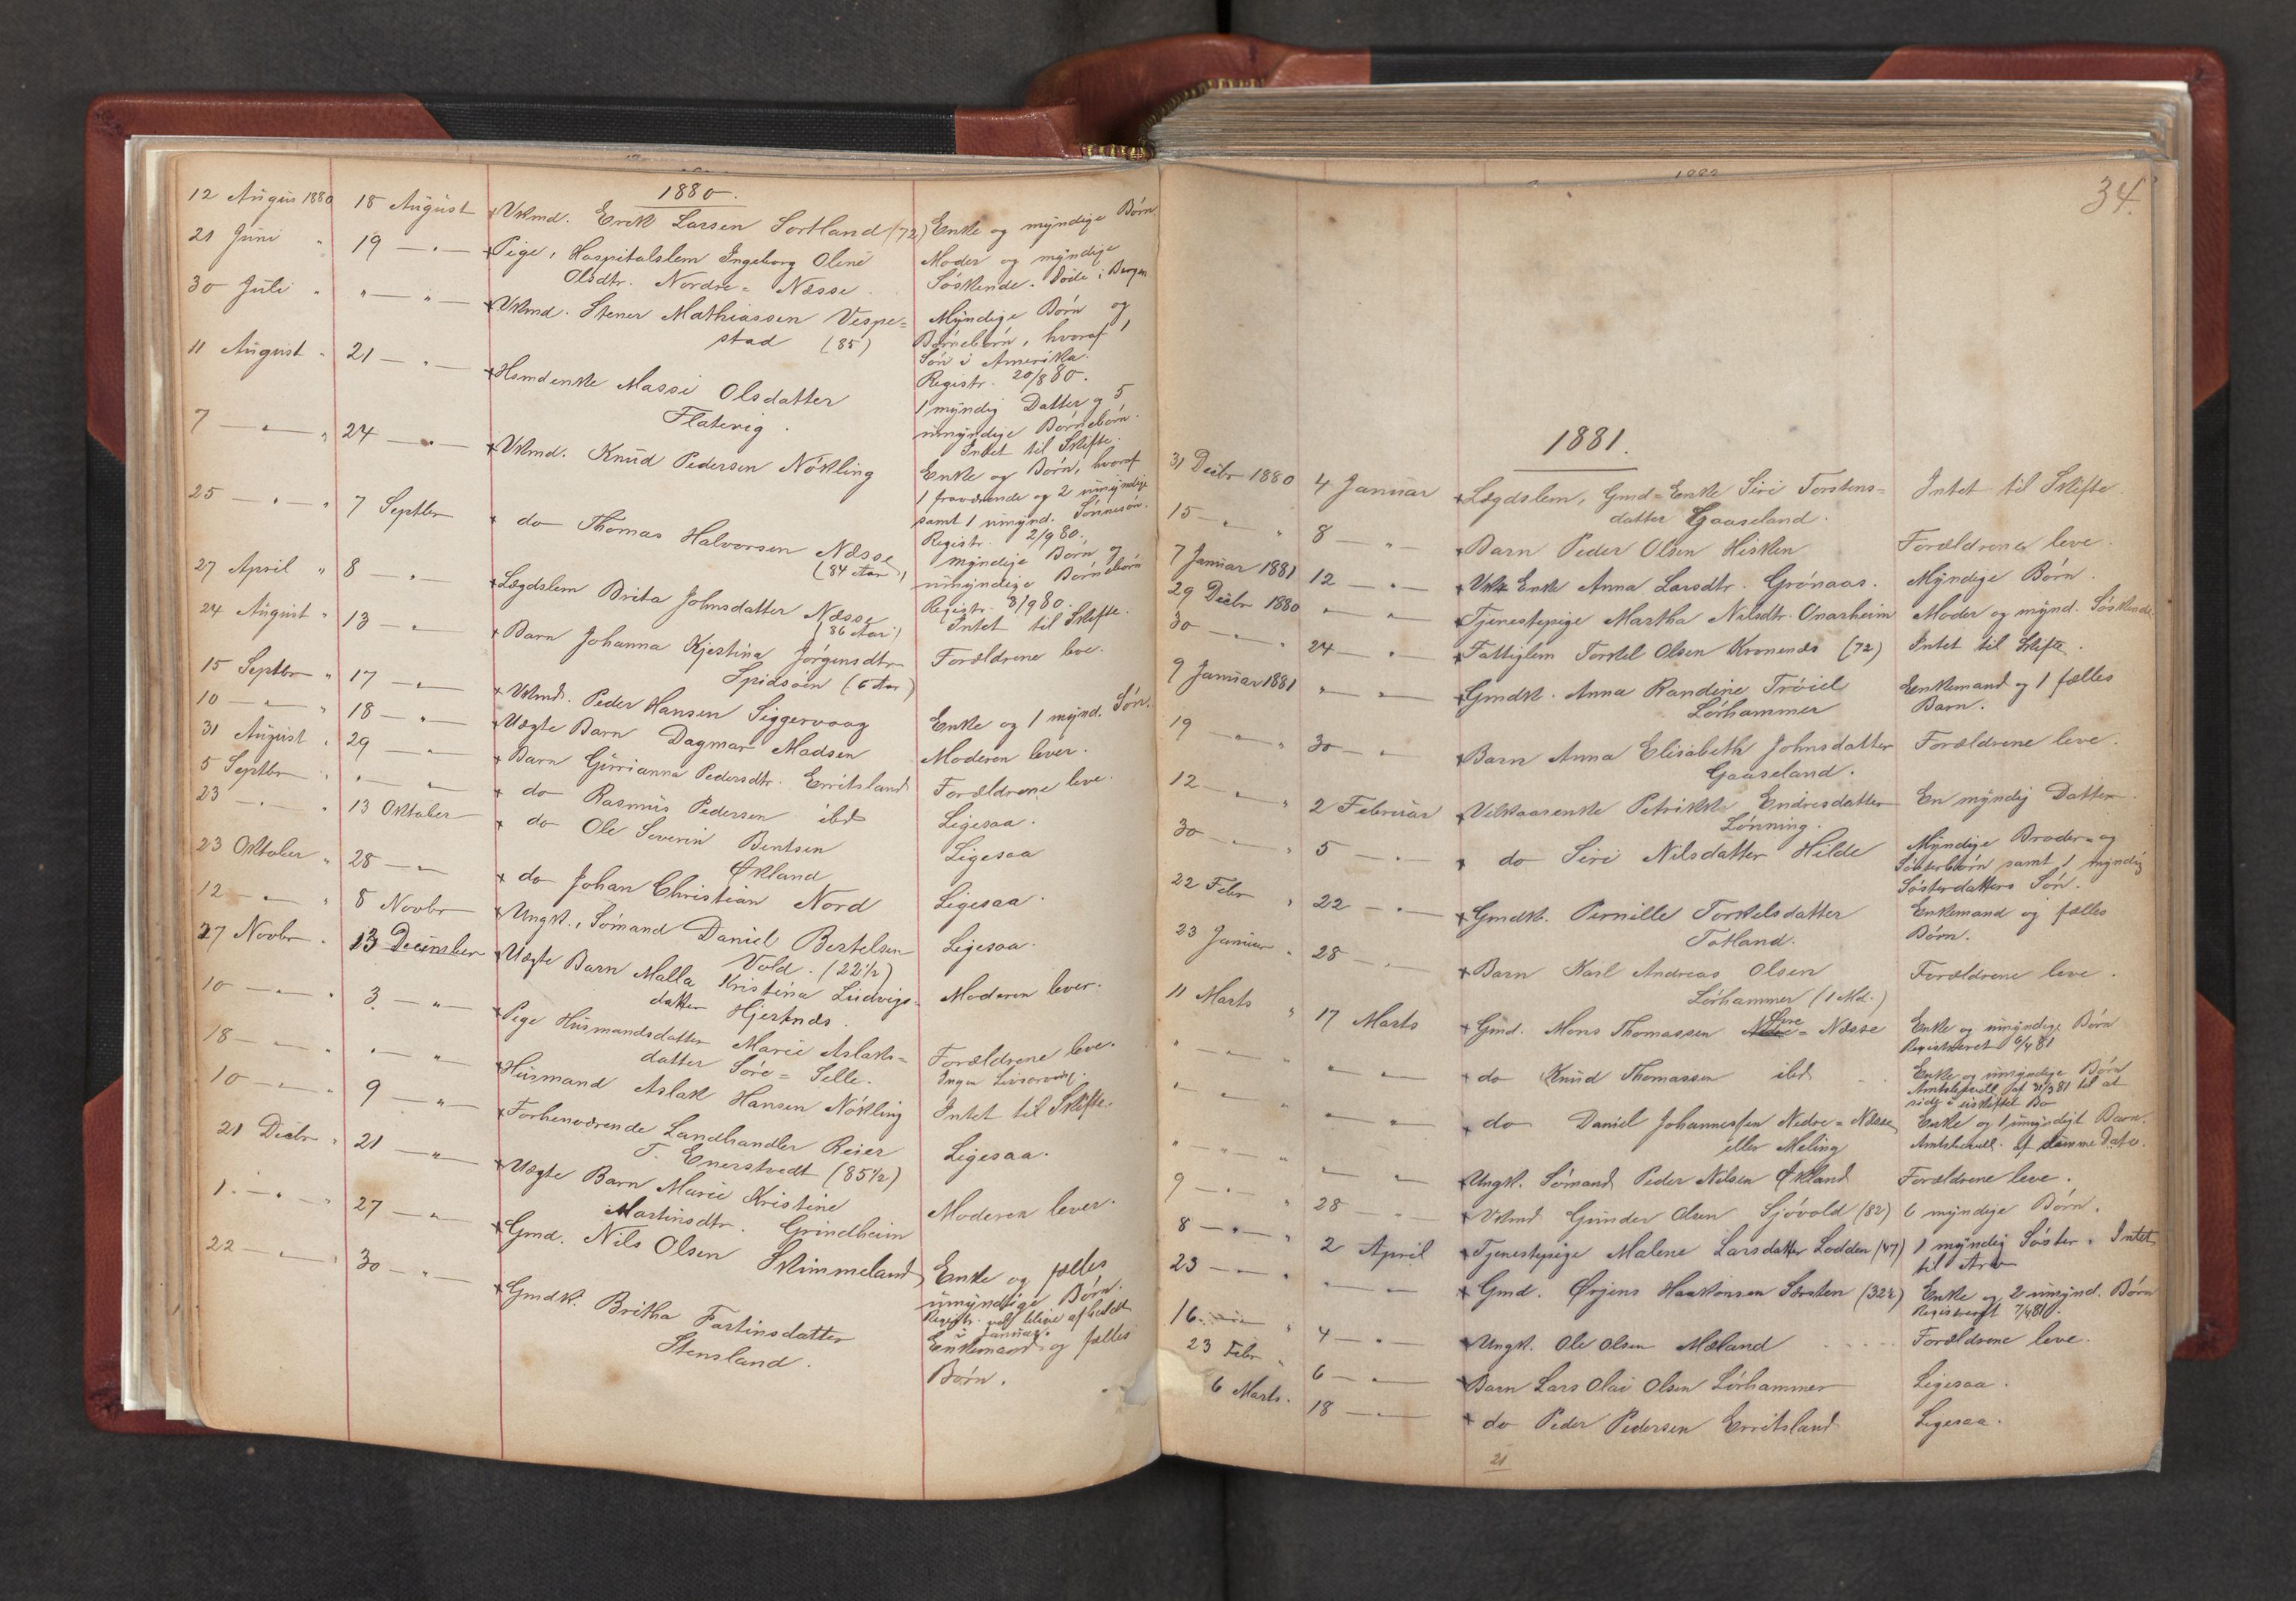 1880.
12 Augus 1880 18 August Vkmd. Erik Larsen Sortland (72) Enke og myndige Børn.
21 Juni " 19 — " — Pige, Hospitalslem Ingeborg Olene Moder og myndige
Olsdtr. Nordre = Næsse. Søskende. Døde i Bergen
30 Juli " " — " — Vkmd. Stener Mathiassen Vespe= Myndige Børn og
stad (85) Børnebørn, hvoraf 1
Søn i Amerika.
Registr. 20/8 80.
11 August " 21 — " — Hsmdenke Massi Olsdatter 1 myndig Datter og 5
Flatevig. umyndige Børnebørn.
Intet til Skifte.
7 — " — " 24 — " — Vkmd. Knud Pedersen Nökling Enke og Børn, hvoraf
1 fraværende og 2 umyndige
samt 1 umynd. Sönnesön.
Registr. 2/9 80.
25 — " — " 7 Septbr do Thomas Halvorsen Næsse myndige Børn og
(84 Aar) umyndige Børnebörn
Registr. 8/9 80.
27 April " 8 — " — Lægdslem Brita Johnsdatter Næsse Intet til Skifte.
(86 Aar)
24 August " 13 — " — Barn Johanna Kjestina Jørgensdtr Forældrene leve.
Spidsøen (6 Aar)
15 Septbr " 17 — " — Vkmd. Peder Hansen Siggervaag Enke og 1 mynd. Søn.
10 — " — " 18 — " — Uægte Barn Dagmar Madsen Moderen lever.
31 August " 29 — " — Barn Gurianna Pedersdtr. Erritsland Forældrene leve.
5 Septbr " " — " do Rasmus Pedersen ibd Ligesaa.
23 — " — " 13 Oktober do Ole Severin Bentsen Ligesaa
Økland
23 Oktober " 28 — " do Johan Christian Nord Ligesaa.
12 — " — " 8 Novbr Ungk., Sømand Daniel Bertelsen Ligesaa.
Vold. (22½)
27 Novbr " 13 December Uægte Barn Malla Kristina Ludvigs- Moderen lever.
datter Hjertnæs.
10 — " — " 3 — " — Pige Husmandsdatter Marie Aslaks= Forældrene leve.
datter Søre = Selle.
18 — " — " " — " — Husmand Aslak Hansen Nökling Intet til Skifte.
10 — " — " 9 — " — Forhenværende Landhandler Reier Ligesaa.
T. Enerstvedt (85½)
21 Decbr " 21 — " — Uægte Barn Marie Kristine Moderen lever.
Martinsdtr. Grindheim
1. — " — " 27 — " — Gmd. Nils Olsen Skimmeland Enke og fælles
umyndige Børn.
Registr. vil blive afholdt
i Januar.
22 — " — " 30 — " — Gmdk. Britha Fartinsdatter Enkemand og fælles
Stensland. Børn.
34.
1881.
31 Decbr 1880 4 Januar Lægdslem, Gmd=Enke Siri Torstens= Intet til Skifte.
datter Gaaseland.
15 — " — " 8 — " — Barn Peder Olsen Hisken Forældrene leve.
7 Januar 1881 12 — " — Vkk Enke Anna Larsdtr. Grønaas. Myndige Børn.
29 Decbr 1880 " — " — Tjenestepige Martha Nilsdtr. Onarheim Moder og mynd. Søskende
30 — " — " 24 — " — Fattiglem Torkel Olsen Kronenæs (72) Intet til Skifte.
9 Januar 1881 " — " — Gmdk. Anna Randine Trøiel Eenkemand og 1 fælles
Lørhammer Barn.
19 — " — " 30 — " — Barn Anna Elisabeth Johnsdatter Forældrene leve.
Gaaseland.
12 — " — " 2 Februar Velkaarenke Petrikke Endresdatter En myndig Datter.
Lønning.
30 — " — " 5 — " — do Siri Nilsdatter Hilde Myndige Broder= og
Søsterbørn samt 1 myndig
Søsterdatters Søn.
22 Febr " 22 — " — Gmdk. Pernille Torkelsdatter Enkemand og fælles
Totland. Børn.
23 Januar " 28 — " — Barn Karl Andreas Olsen Forældrene leve.
Lørhammer (1 Md.)
11 Marts " 17 Marts Gmd. Mons Thomassen Øvre = Næsse Enke og umyndige Børn
Registreret 6/4 81
" — " — " " — " do Knud Thomassen ibd. Enke og umyndige Børn
Amtsbevill. af 31/3 81 til at
sidde i uskiftet Bo
" — " — " " — " do Daniel Johannesen Nedre = Næsse Enke og 1 umyndigt Barn.
eller Meling Amtsbevill. af samme Dato.
" — " — " " — " Ungk. Sømand Peder Nilsen Økland Forældrene leve.
9 — " — " 28 — " — Vkmd Gunder Olsen Sjøvold (82) 6 myndige Børn.
8 — " — " 2 April Tjenestepige Malene Larsdatter Lodden (47) 1 myndig Søster. Intet
til Arv
23 — " — " " — " Gmd. Ørjens Haakonsen Særsten (32½) Enke og 2 umynd. Børn
Registreret 7/4 81.
16. — " — " 4 — " — Ungk. Ole Olsen Mæland Forældrene leve.
23 Febr " 6 — " — Barn Lars Olai Olsen Lørhammer Ligesaa.
6 Marts. 18 — " — do Peder Pedersen Erritsland Ligesaa.
21